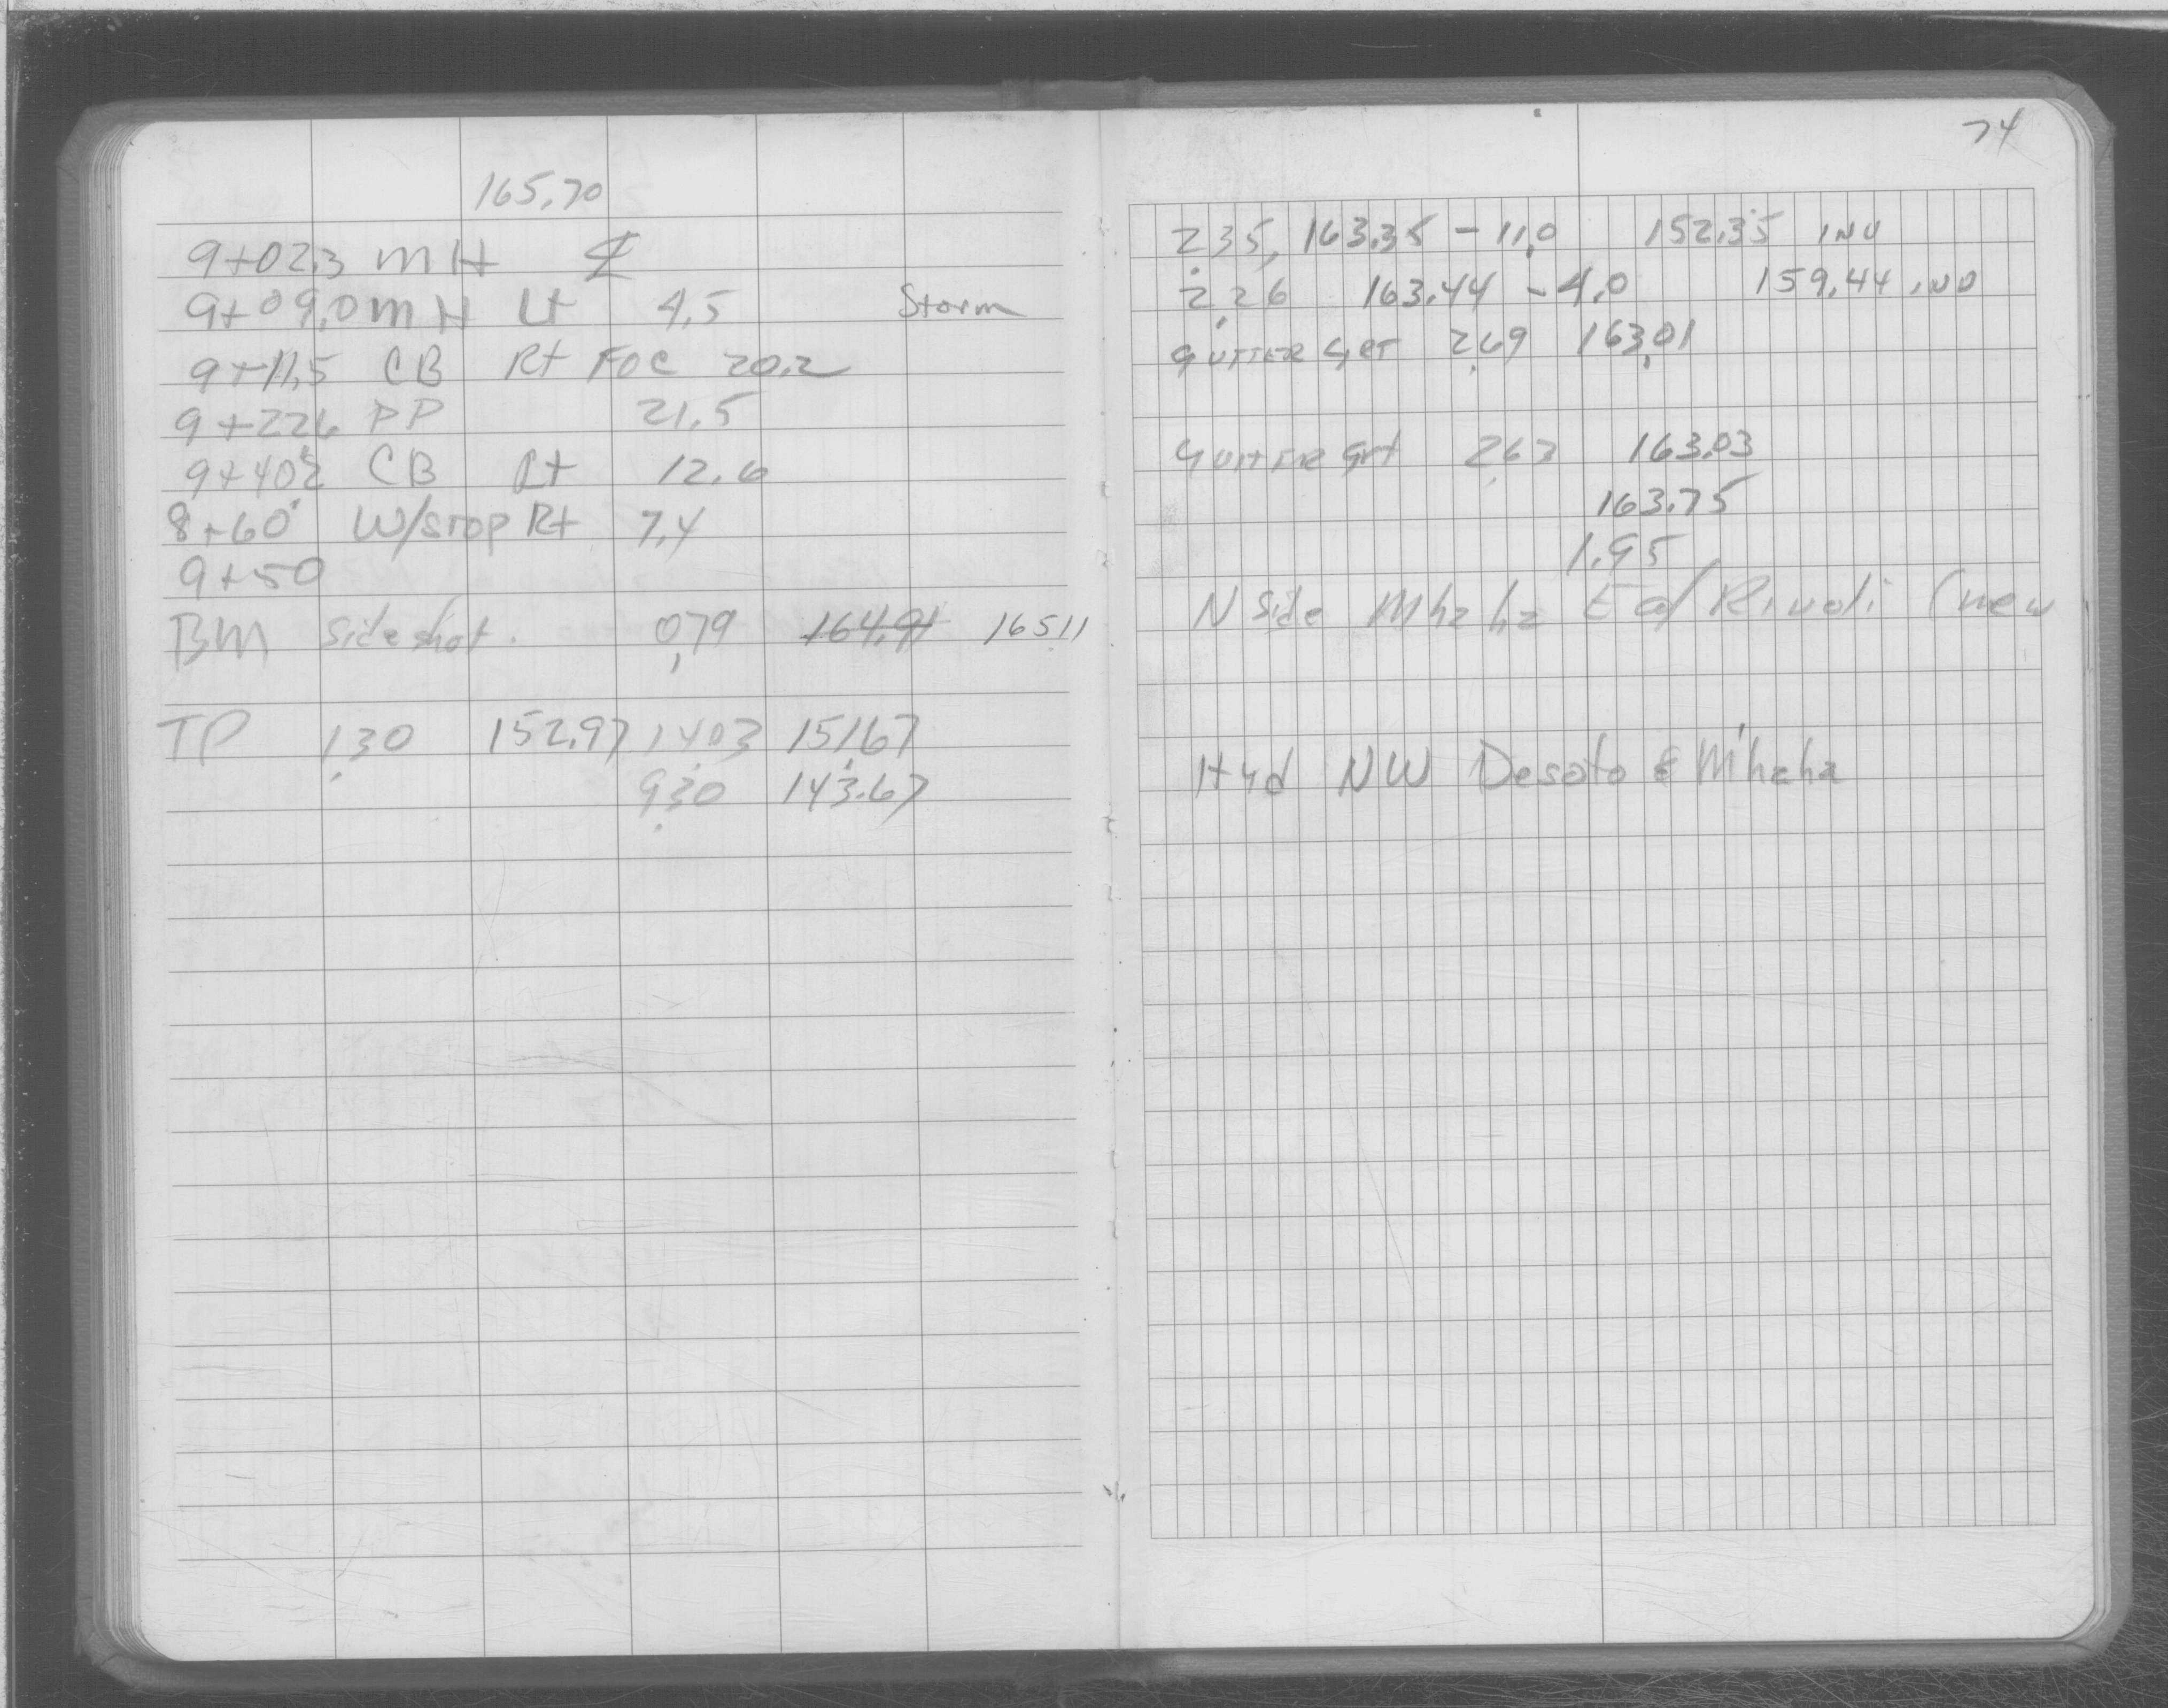 165.70
9+02.3 MH ℄
9+09.0 MH Lt 4.5 Storm
9+11.5 CB Rt FOC 20.2
9+22.6 PP 21.5
9+40.2 CB Rt 12.6
8+60 W/STOP Rt 7.4
9+50
BM Sideshot. 0.79 164.91 165.11
TP 1.30 152.97 14.03 151.67
9.30 143.67
74
2.35, 163.35 - 11.0 152.35 INV
2.26 163.44 - 4.0 159.44 INV
GUTTER GRT 2.69 163.01
GUTTER Grt 2.63 163.03
163.75
1.95
N Side Mhaha E of Rivoli (new
Hyd NW Desoto & M'haha